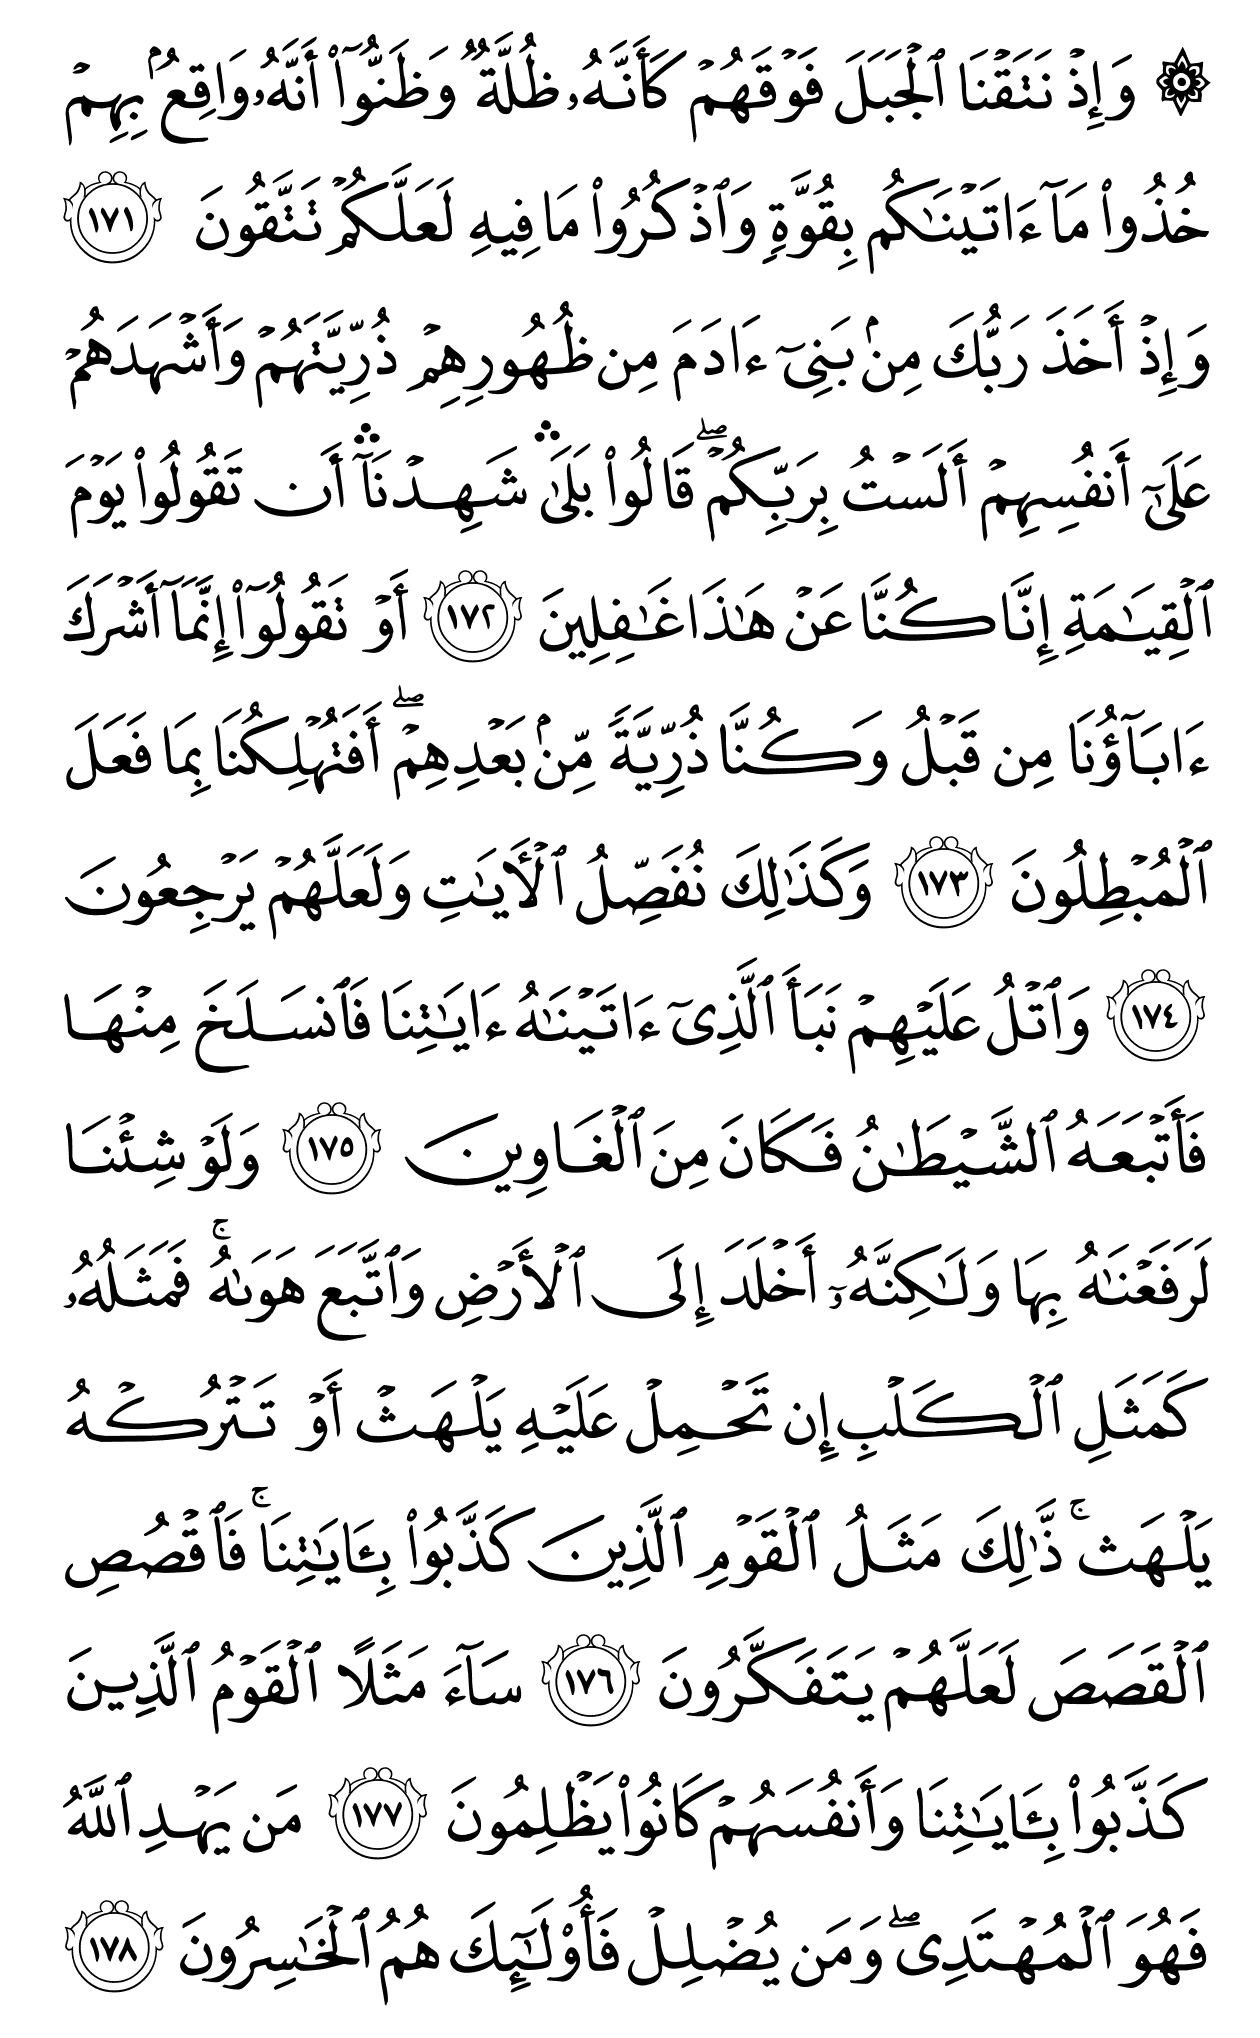 ۞ وَإِذۡ نَتَقۡنَا ٱلۡجَبَلَ فَوۡقَهُمۡ كَأَنَّهُۥ ظُلَّةٞ وَظَنُّوٓاْ أَنَّهُۥ وَاقِعُۢ بِهِمۡ
خُذُواْ مَآ ءَاتَيۡنَٰكُم بِقُوَّةٖ وَٱذۡكُرُواْ مَا فِيهِ لَعَلَّكُمۡ تَتَّقُونَ ١٧١
وَإِذۡ أَخَذَ رَبُّكَ مِنۢ بَنِيٓ ءَادَمَ مِن ظُهُورِهِمۡ ذُرِّيَّتَهُمۡ وَأَشۡهَدَهُمۡ
عَلَىٰٓ أَنفُسِهِمۡ أَلَسۡتُ بِرَبِّكُمۡۖ قَالُواْ بَلَىٰۛ شَهِدۡنَآۛ أَن تَقُولُواْ يَوۡمَ
ٱلۡقِيَٰمَةِ إِنَّا كُنَّا عَنۡ هَٰذَا غَٰفِلِينَ ١٧٢ أَوۡ تَقُولُوٓاْ إِنَّمَآ أَشۡرَكَ
ءَابَآؤُنَا مِن قَبۡلُ وَكُنَّا ذُرِّيَّةٗ مِّنۢ بَعۡدِهِمۡۖ أَفَتُهۡلِكُنَا بِمَا فَعَلَ
ٱلۡمُبۡطِلُونَ ١٧٣ وَكَذَٰلِكَ نُفَصِّلُ ٱلۡأٓيَٰتِ وَلَعَلَّهُمۡ يَرۡجِعُونَ
١٧٤ وَٱتۡلُ عَلَيۡهِمۡ نَبَأَ ٱلَّذِيٓ ءَاتَيۡنَٰهُ ءَايَٰتِنَا فَٱنسَلَخَ مِنۡهَا
فَأَتۡبَعَهُ ٱلشَّيۡطَٰنُ فَكَانَ مِنَ ٱلۡغَاوِينَ ١٧٥ وَلَوۡ شِئۡنَا
لَرَفَعۡنَٰهُ بِهَا وَلَٰكِنَّهُۥٓ أَخۡلَدَ إِلَى ٱلۡأَرۡضِ وَٱتَّبَعَ هَوَىٰهُۚ فَمَثَلُهُۥ
كَمَثَلِ ٱلۡكَلۡبِ إِن تَحۡمِلۡ عَلَيۡهِ يَلۡهَثۡ أَوۡ تَتۡرُكۡهُ
يَلۡهَثۚ ذَّٰلِكَ مَثَلُ ٱلۡقَوۡمِ ٱلَّذِينَ كَذَّبُواْ بِـَٔايَٰتِنَاۚ فَٱقۡصُصِ
ٱلۡقَصَصَ لَعَلَّهُمۡ يَتَفَكَّرُونَ ١٧٦ سَآءَ مَثَلًا ٱلۡقَوۡمُ ٱلَّذِينَ
كَذَّبُواْ بِـَٔايَٰتِنَا وَأَنفُسَهُمۡ كَانُواْ يَظۡلِمُونَ ١٧٧ مَن يَهۡدِ ٱللَّهُ
فَهُوَ ٱلۡمُهۡتَدِيۖ وَمَن يُضۡلِلۡ فَأُوْلَٰٓئِكَ هُمُ ٱلۡخَٰسِرُونَ ١٧٨